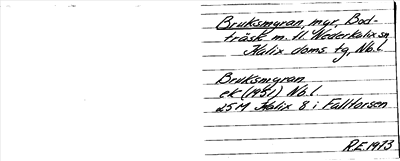 Bruksmyran, myr, Bod-
träsk m. fl. Nederkalix sn
Kalix doms. tg, Nb.l
Bruksmyran
ek (1951) Nb.l
25M Kalix 8 i Falltorsen
R.E. 1973